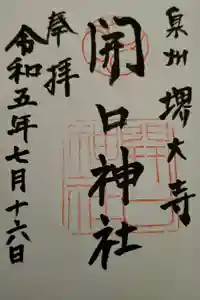 泉州 堺大寺
開口神社
奉拝
令和五年七月十六日